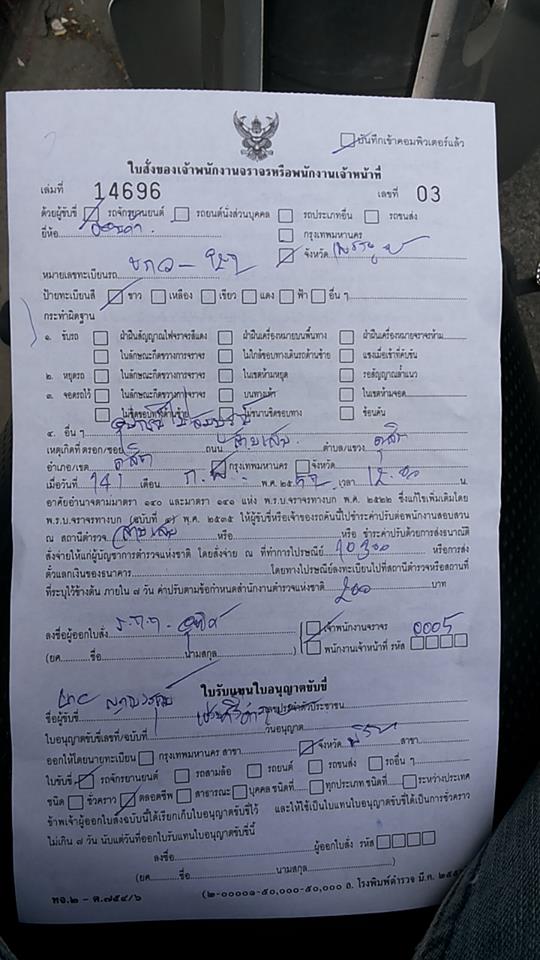 บันทึกเข้าคอมพิวเตอร์แล้ว
ใบสั่งของเจ้าพนักงานจราจรหรือพนักงานเจ้าหน้าที่
เล่มที่ 14696 เลขที่ 03
ด้วยผู้ขับขี่ รถจักรยานยนต์ รถยนต์นั่งส่วนบุคคล รถประเภทอื่น รถขนส่ง
ยี่ห้อ ฮอนด้า กรุงเทพมหานคร
จังหวัด
หมายเลขทะเบียนรถ
ป้ายทะเบียนสี ขาว เหลือง เขียว แดง ฟ้า อื่น ๆ
กระทำผิดฐาน
๑. ขับรถ ฝ่าฝืนสัญญาณไฟจราจรสีแดง ฝ่าฝืนเครื่องหมายบนพื้นทาง ฝ่าฝืนเครื่องหมายจราจรห้าม
ในลักษณะกีดขวางการจราจร ไม่ใกล้ขอบทางเดินรถด้านซ้าย แซงเมื่อเข้าที่คับขัน
๒. หยุดรถ ในลักษณะกีดขวางการจราจร ในเขตห้ามหยุด รอสัญญาณล้ำแนว
๓. จอดรถไว้ ในลักษณะกีดขวางการจราจร บนทางเท้า ในเขตห้ามจอด
ไม่ชิดขอบทางด้านซ้าย ไม่ขนานชิดขอบทาง ซ้อนคัน
๔. อื่น ๆ
เหตุเกิดที่ ตรอก/ซอย ถนน สามเสน ตำบล/แขวง ดุสิต
อำเภอ/เขต ดุสิต กรุงเทพมหานคร จังหวัด
เมื่อวันที่ 14 เดือน ก.พ. พ.ศ. ๒๕ เวลา 12.00 น.
อาศัยอำนาจตามมาตรา ๑๔๐ และมาตรา ๑๔๑ แห่ง พ.ร.บ.จราจรทางบก พ.ศ. ๒๕๒๒ ซึ่งแก้ไขเพิ่มเติมโดย
พ.ร.บ.จราจรทางบก (ฉบับที่ ๔) พ.ศ. ๒๕๓๕ ให้ผู้ขับขี่หรือเจ้าของรถคันนี้ไปชำระค่าปรับต่อพนักงานสอบสวน
ณ สถานีตำรวจ สามเสน หรือ หรือ ชำระค่าปรับด้วยการส่งธนาณัติ
สั่งจ่ายให้แก่ผู้บัญชาการตำรวจแห่งชาติ โดยสั่งจ่าย ณ ที่ทำการไปรษณีย์ 10300 หรือการส่ง
ตั๋วแลกเงินของธนาคาร โดยทางไปรษณีย์ลงทะเบียนไปที่สถานีตำรวจหรือสถานที่
ที่ระบุไว้ข้างต้น ภายใน ๗ วัน ค่าปรับตามข้อกำหนดสำนักงานตำรวจแห่งชาติ 200 บาท
ลงชื่อผู้ออกใบสั่ง เจ้าพนักงานจราจร 0005
(ยศ ชื่อ นามสกุล ) พนักงานเจ้าหน้าที่ รหัส
ใบรับแทนใบอนุญาตขับขี่
ชื่อผู้ขับขี่ เลขประจำตัวประชาชน
ใบอนุญาตขับขี่เลขที่/ฉบับที่ วันอนุญาต
ออกให้โดยนายทะเบียน กรุงเทพมหานคร สาขา จังหวัด สาขา
ใบขับขี่ รถจักรยานยนต์ รถสามล้อ รถยนต์ รถขนส่ง รถอื่น ๆ
ชนิด ชั่วคราว ตลอดชีพ สาธารณะ บุคคล ชนิดที่ ทุกประเภท ชนิดที่ ระหว่างประเทศ
ข้าพเจ้าผู้ออกใบสั่งฉบับนี้ได้เรียกเก็บใบอนุญาตขับขี่ไว้ และให้ใช้เป็นใบแทนใบอนุญาตขับขี่ได้เป็นการชั่วคราว
ไม่เกิน ๗ วัน นับแต่วันที่ออกใบรับแทนใบอนุญาตขับขี่นี้
ลงชื่อ ผู้ออกใบสั่ง รหัส
(ยศ ชื่อ นามสกุล )
พจ.๒ - ต.๗๕๔/๖ (๒-๐๐๐๐๑-๕๐,๐๐๐-๕๐,๐๐๐ ถ. โรงพิมพ์ตำรวจ มี.ค.